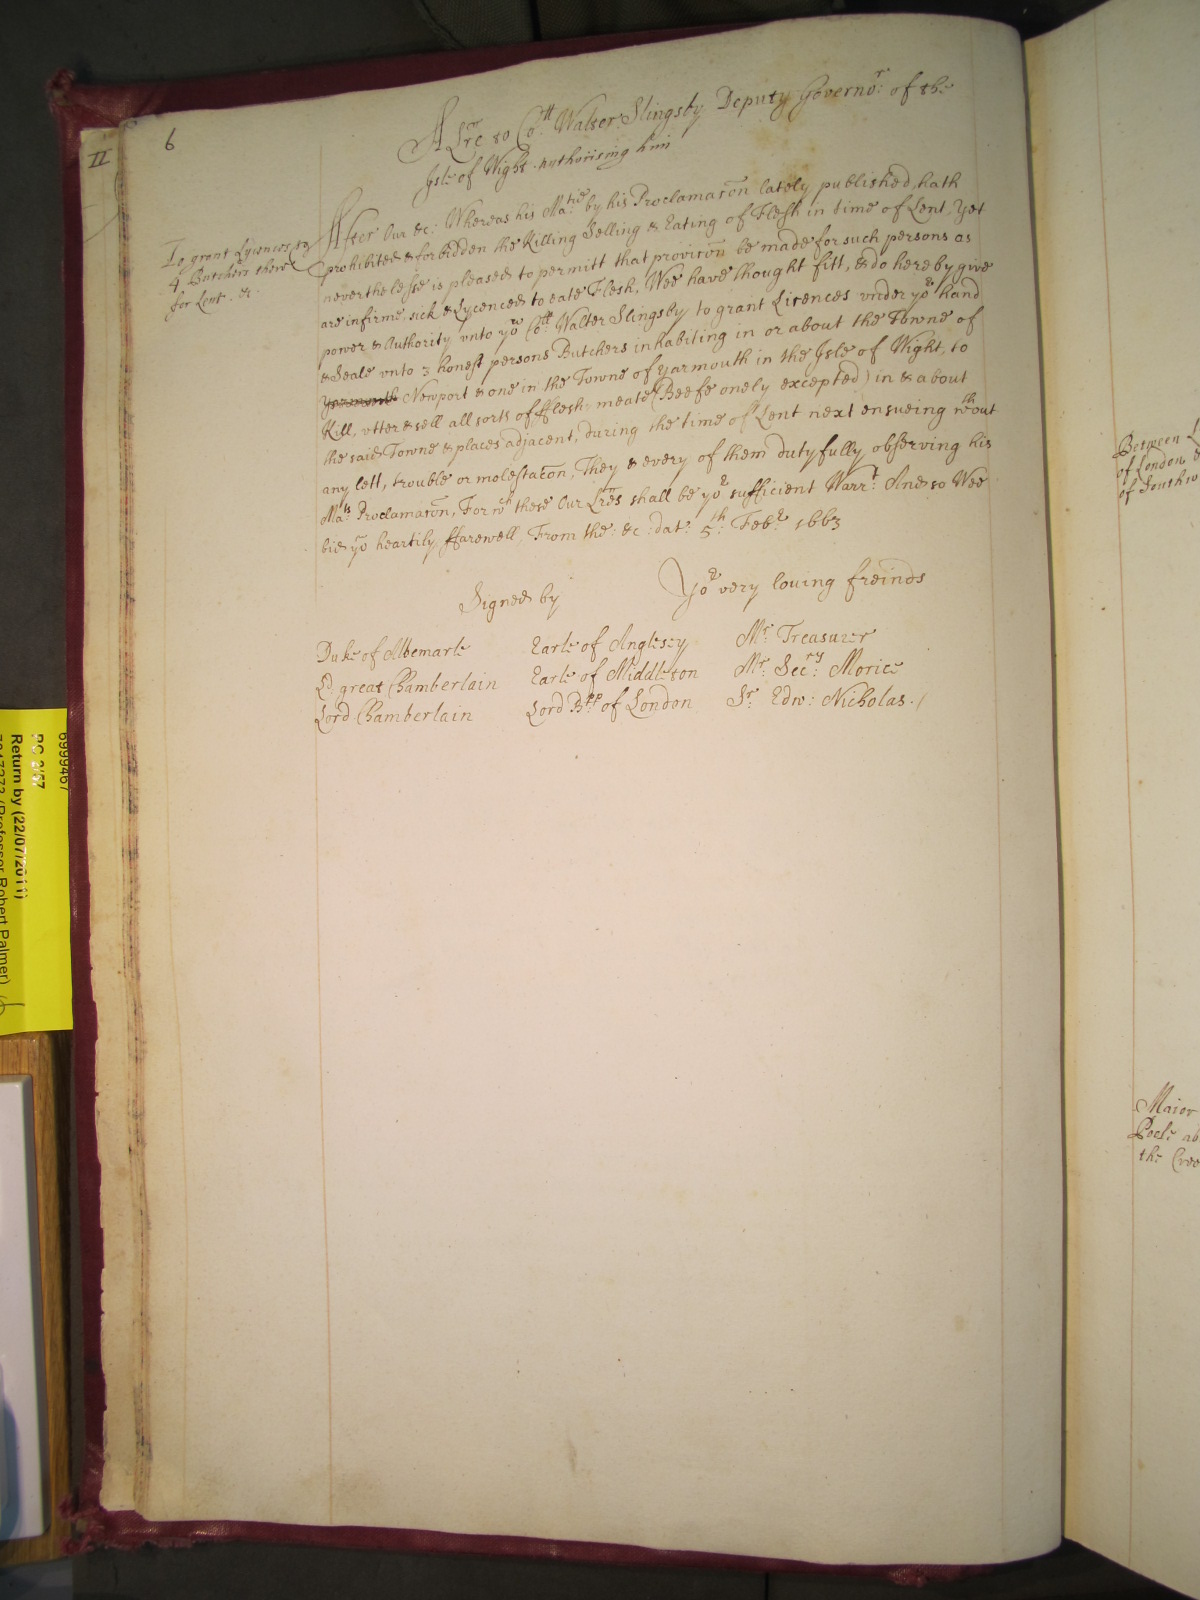 6
II
A Lre to Coll: Walter Slingsby Deputy Governor: of the
Isle of Wight authorising him
To grant Lycences to
4 Butchers there
for Lent. &c.
After Our &c: Whereas his Matie: by his Proclamacõn lately published, hath
prohibited & forbidden the Killing Selling & Eating of Flesh in time of Lent, Yet
neverthelesse is pleased to permitt that provision be made for such persons as
are infirme, sick & Lycenced to eate Flesh, Wee have thought fitt, & do hereby give
power & Authority vnto yow Coll: Walter Slingsby to grant Licences vnder yor hand
& Seale vnto 3 honest persons Butchers inhabiting in or about the Towne of
Yarmouth Newport & one in the Towne of Yarmouth in the Isle of Wight, to
Kill, vtter & sell all sorts of fflesh-meate (Beefe onely excepted) in & about
the said Towne & places adjacent, during the time of Lent next ensueing wthout
any lett, trouble or molestacõn, They & every of them dutyfully observing his
Mats: Proclamacõn, For wch these Our Lres shall be yor sufficient Warrt: And so Wee
bid yo heartily ffarewell, From the: &c: dat: 5th: Febr: 1663
Signed by Yor very loving freinds
Duke of Albemarle Earle of Anglesey Mr: Treasurer
Ld. great Chamberlain Earle of Middleton Mr. Secry: Morice
Lord Chamberlain Lord Bpp: of London Sr. Edw: Nicholas.
6999467
PC 2/57
Return by (22/07/2011)
(Professor Robert Palmer)
Between
of London
of Southw
Maior
Poole ab
the